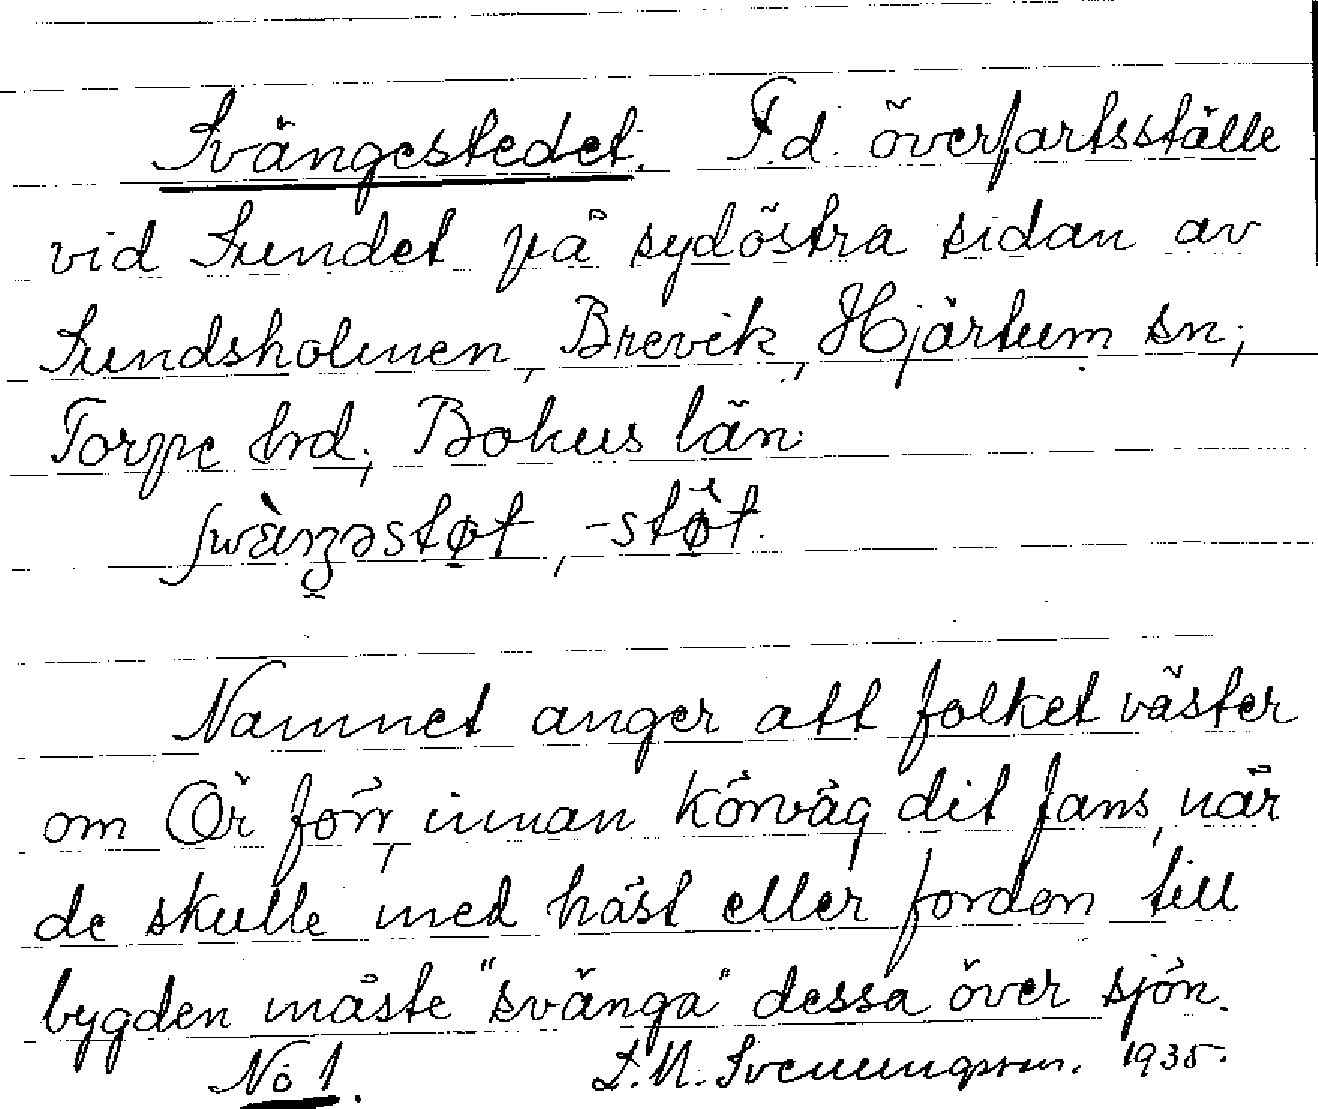 Svängestedet. F.d. överfartsställe
vid Sundet på sydöstra sidan av
Sundsholmen, Brevik, Hjärtum sn;
Torpe hrd; Bohus län.
-støt.
Namnet anger att folket väster
om Ör förr, innan körväg dit fans, när
de skulle med häst eller fordon till
bygden måste "svänga" dessa över sjön.
No 1. Svenungsson. 1935.